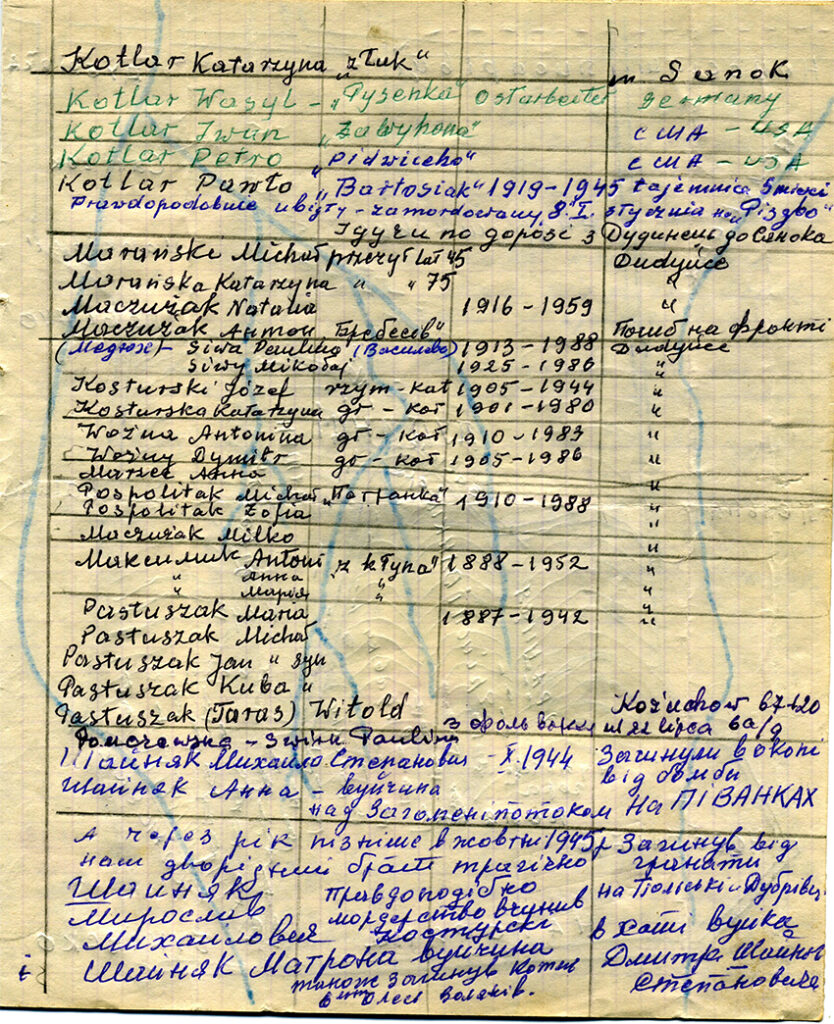 Kotlar Katarzyna "z Łuk" w Sanok
Kotlar Wasyl - "Pysenka" ostarbeiter Germany
Kotlar Iwan "Zawyhona" США - USA
Kotlar Petro "Pidwicho" США - USA
Kotlar Pawło "Bartosiak" 1919-1945 tajemnica śmierci
Prawdopodobnie ubity - zamordowany 8.I. stycznia на "Різдво"
Ідучи по дорозі з Дудинець до Сянока
Marański Michał przeżył lat 45 Dudyńce
Marańska Katarzyna " " 75 "
Maczużak Natalia 1916-1959 "
Maczużak Антон Погиб на фронті
(Медюх) - Siwa Paulina (Василева) 1913-1988 Dudyńce
Siwy Mikołaj 1925-1986 "
Kosturski Józef rzym-kat 1905-1944 "
Kosturska Katarzyna gr-kat 1901-1980 "
Woźna Antonina gr-kat 1910-1983 "
Woźny Dymitr gr-kat 1905-1986 "
Marzec Anna "
Pospolitak Michał 1910-1988 "
Pospolitak Zofia "
Maczużak Milko "
Максимик Antoni 1888-1952 "
" Анна " "
" Марія " "
Pastuszak Maria 1887-1942 "
Pastuszak Michał
Pastuszak Jan " syn
Pastuszak Kuba "
Pastuszak (Taras) Witold Kożuchów 67-120
з фольварки ul 22 lipca 6a/9
Paulina
Шайняк Михайло Степанович - X.1944 Загинули в окопі
від бомби
Шайняк Анна - вуйчина
над Загоменіпотоком На ПІВАНКАХ
А через рік пізніше в жовтні 1945р Загинув від
наш дворідний брат трагічно гранати
Шайняк Правдоподібно на Польській Дубрівці
Мирослав мордерство вчинив
Михайлович Костурскі в хаті вуйка
і Шайняк Матрона вуйчина Дмитра Шайняк
також Загинув Степановича
Олесь